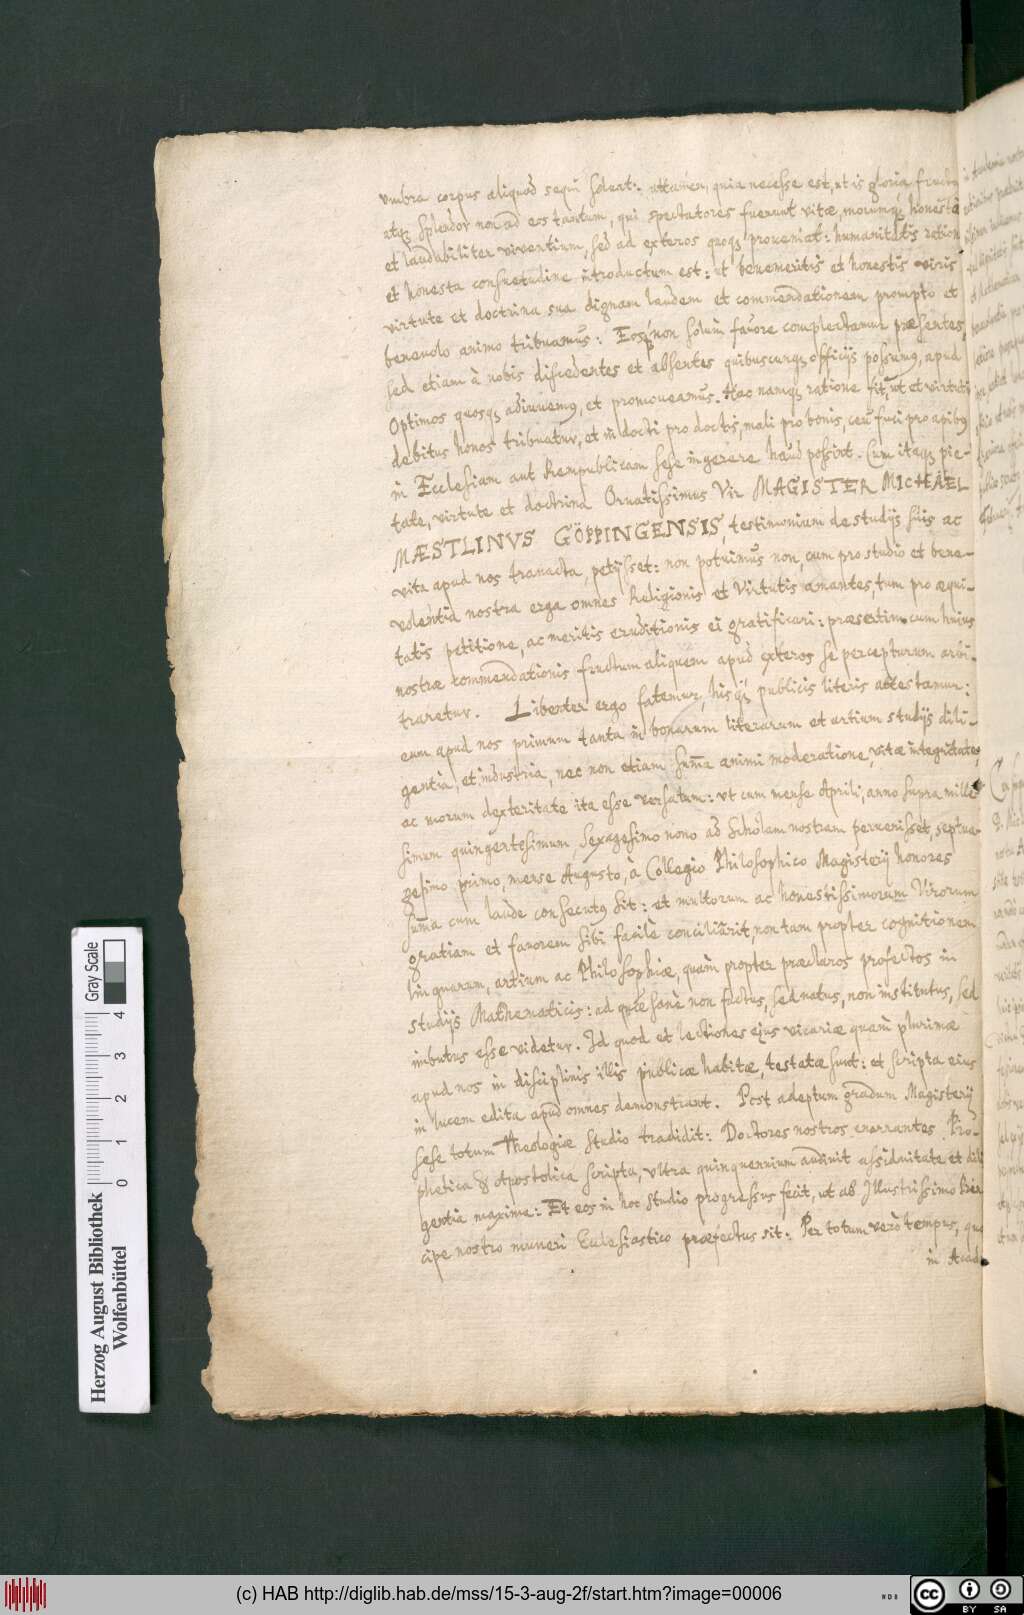 umbra corpus aliquod sequi soleat: attamen, quia necesse est, ut is gloriæ fructus
atqꝫ splendor non ad eos tantum, qui spectatores fuerunt vitæ, morumqꝫ honestè
et laudabiliter viventium, sed ad exteros quoqꝫ proveniat: humanitatis ratione
et honesta consuetudine introductum est: ut benemeritis et honestis viris
virtute et doctrina sua dignam laudem et commendationem prompto et
benevolo animo tribuamus: Eosqꝫ non solùm favore complectamur præsentes,
sed etiam à nobis discedentes et absentes quibuscunqꝫ officijs possumꝰ, apud
Optimos quosqꝫ adiuvemꝰ, et promoveamus. Hac namqꝫ ratione fit, ut et virtuti
debitus honos tribuatur, et indocti pro doctis, mali pro bonis, ceu fuci pro apibꝰ
in Ecclesiam aut Rempublicam sese ingerere haud possint. Cum itaqꝫ pie-
tate, virtute et doctrina Ornatissimus Vir MAGISTER MICHAEL
MÆSTLINVS GÖPPINGENSIS, testimonium de studijs suis ac
vita apud nos transacta, petijsset: non potuimus non, cum pro studio et bene-
volentia nostra erga omnes Religionis et Virtutis amantes, tum pro æqui-
tatis petitione, ac meritis eruditionis ei gratificari: præsertim cum huius
nostræ commendationis fructum aliquem apud exteros se percepturum arbi-
traretur. Libenter ergo fatemur, hisqꝫ publicis literis attestamur:
eum apud nos primum tanta in bonarum literarum et artium studijs dili-
gentia, et industria, nec non etiam sum̃a animi moderatione, vitæ integritate,
ac morum dexteritate ita esse versatum: ut cum mense Aprili, anno supra mille-
simum quingentesimum sexagesimo nono ad Scholam nostram pervenisset, septua-
gesimo primo, mense Augusto, à Collegio Philosophico Magisterij honores
sum̃a cum laude consecutꝰ sit: et multorum ac honestissimorum Virorum
gratiam et favorem sibi facilè conciliârit, non tam propter cognitionem
linguarum, artium ac Philosophiæ, quàm propter præclaros profectos in
studijs Mathematicis: ad quæ sanè non factus, sed natus, non institutus, sed
imbutus esse videtur. Id quod et lectiones ejus vicariæ quam plurimæ
apud nos in disciplinis illis publicæ habitæ, testatæ sunt: et scripta eius
in lucem edita apud omnes demonstrant. Post adeptum gradum Magisterij
sese totum Theologiæ studio tradidit: Doctores nostros enarrantes Pro-
phetica & Apostolica scripta, ultra quinquennium audivit assiduitate et dili
gentia maxima: Et eos in hoc studio progressus fecit, ut ab Illustrissimo Prin
cipe nostro muneri Ecclesiastico præfectus sit: Per totum verò tempus, quo
in Acad
Gray Scale
0 1 2 3 4
Herzog August Bibliothek
Wolfenbüttel
(c) HAB http://diglib.hab.de/mss/15-3-aug-2f/start.htm?image=00006
WDB
cc BY SA